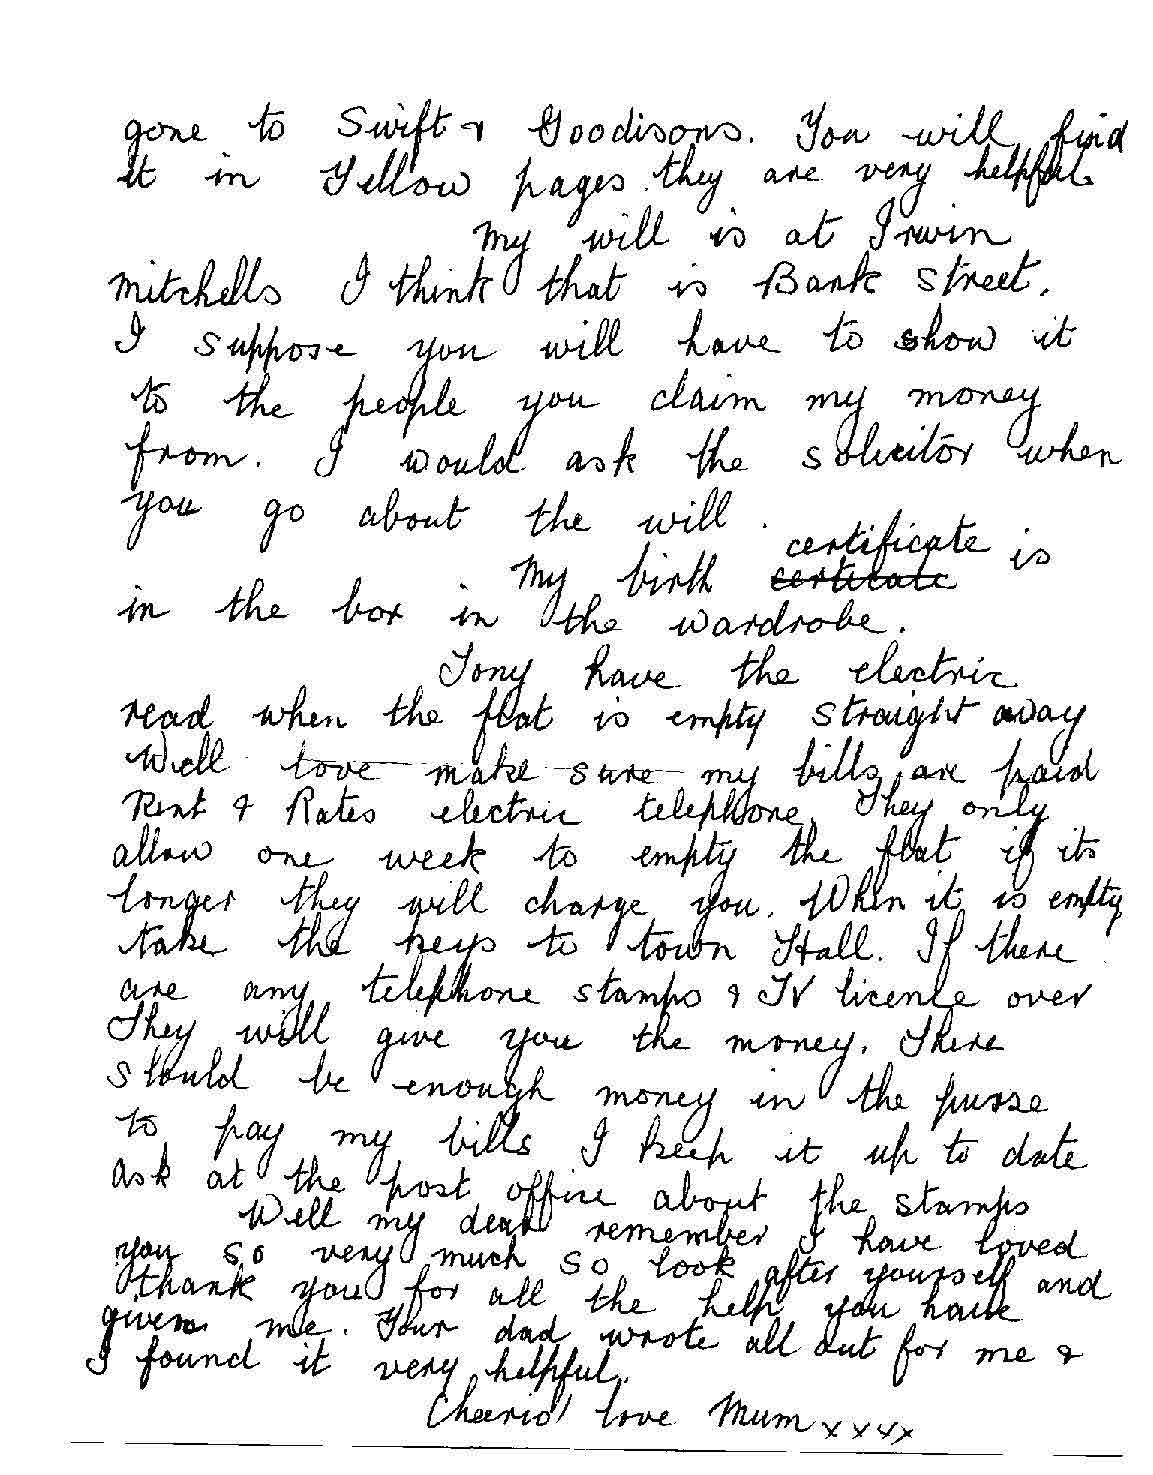 gone to Swift & Goodisons. You will find
it in Yellow pages. they are very helpful.
My will is at Irwin
Mitchells I think that is Bank Street.
I suppose you will have to show it
to the people you claim my money
from. I would ask the solicitor when
you go about the will.
My birth certicate certificate is
in the box in the wardrobe.
Tony have the electric
read when the flat is empty straight away
Well love make sure my bills are paid
Rent & Rates electric telephone. They only
allow one week to empty the flat if its
longer they will charge you. When it is empty
take the keys to town Hall. If there
are any telephone stamps & TV licence over
They will give you the money. There
should be enough money in the purse
to pay my bills I keep it up to date
ask at the post office about the stamps
Well my dear remember I have loved
you so very much so look after yourself and
thank you for all the help you have
given me. Your dad wrote all out for me &
I found it very helpful.
Cheerio love Mum xxxx